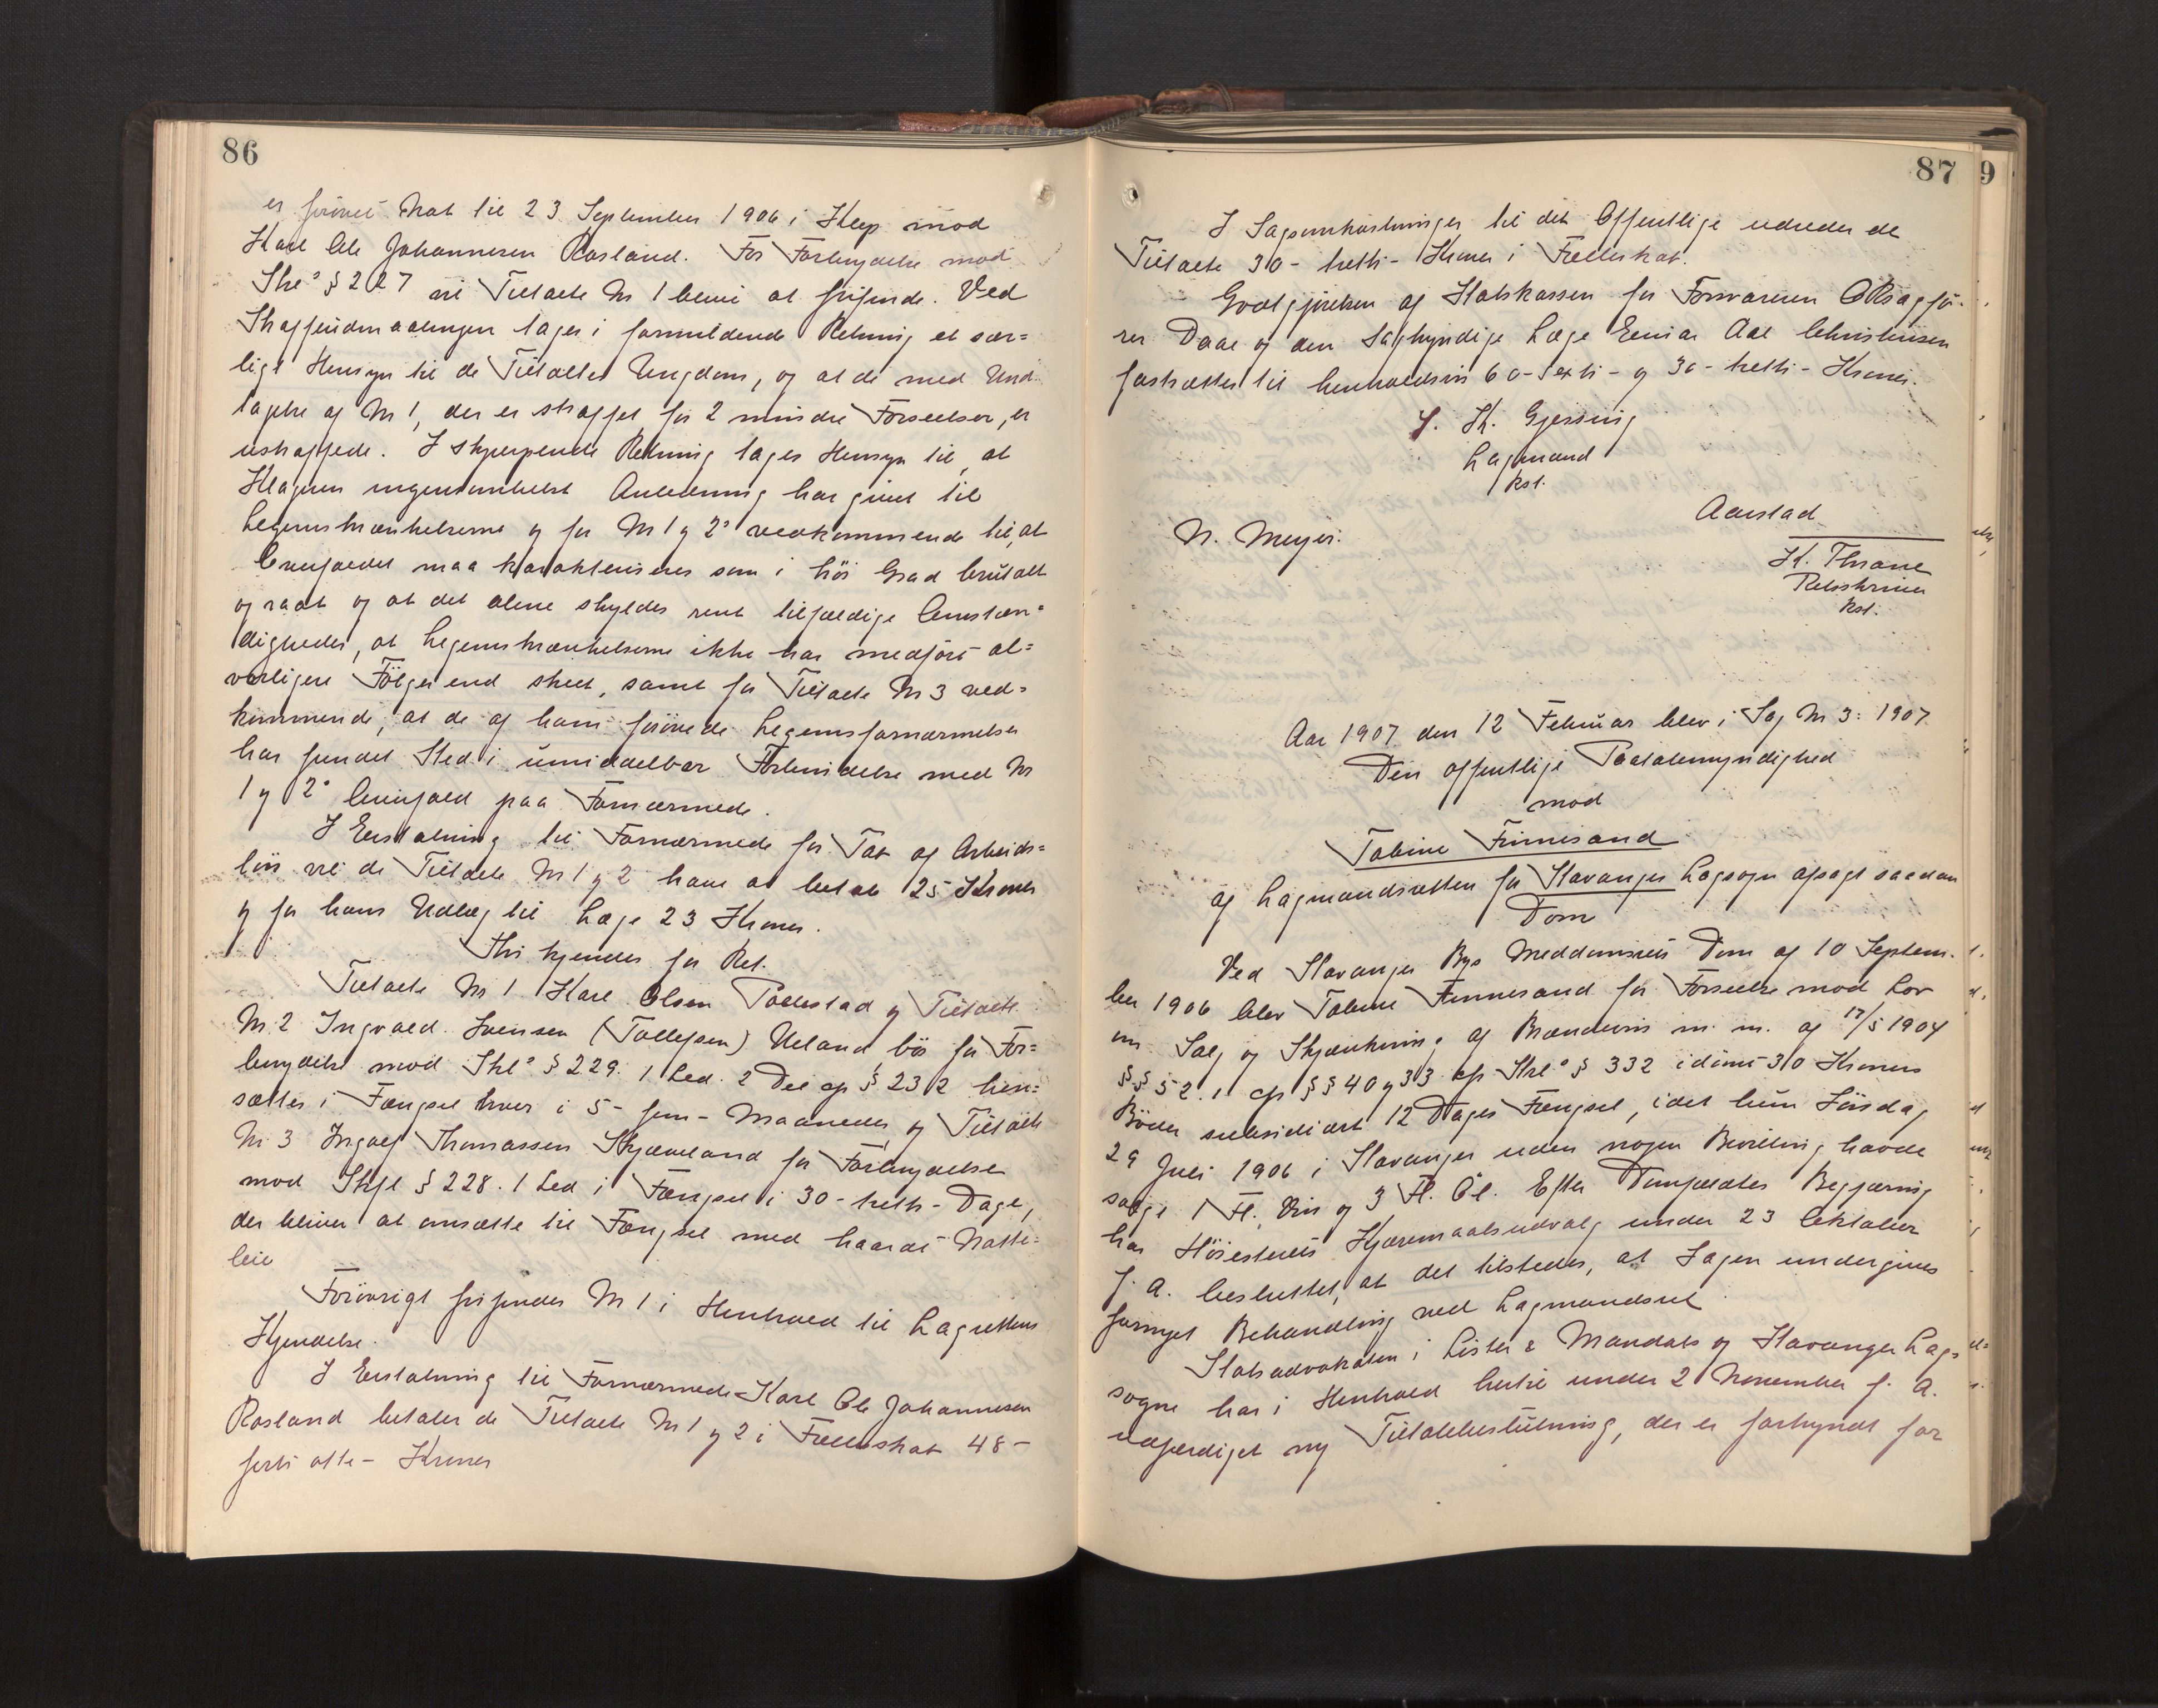 86
er øvet Nat til 23 September 1906 i Klep mod
Karl Ole Johannesen Rosland. For Forbrydelse mod
Strl § 227 vil Tiltalte No 1 blive at frifinde. Ved
Straffeudmaalingen tages i formildende Retning et sær=
ligt Hensyn til de Tiltaltes Ungdom, og at de med Und=
tagelse af No 1, der er straffet for 2 mindre Forseelser, er
ustraffede. I skjærpende Retning tages Hensyn til, at
Klageren ingensomhelst Anledning har givet til
Legemskrænkelserne og for No 1 og 2s vedkommende til, at
Overfaldet maa karakteriseres som i høi Grad brutalt
og raat og at det alene skyldes rent tilfældige Omstæn=
digheder, at Legemskrænkelserne ikke har medført al=
vorligere Følger end skeet, samt for Tiltalte No 3 ved=
kommende, at de af ham øvede Legemsfornærmelser
har fundet Sted i umiddelbar Forbindelse med No
1 og 2s Overfald paa Fornærmede.
I Erstatning til Fornærmede for Tab af Arbeids=
løn vil de Tiltalte No 1 og 2 have at betale 25 Kroner
og for hans Udlæg til Læge 23 Kroner.
Thi kjendes for Ret.
Tiltalte No 1 Karl Olsen Pollestad og Tiltalte
No 2 Ingvald Svensen (Tollefsen) Ueland bør for For=
brydelse mod Strl § 229. 1 Led. 2 Del cfr § 232 hen=
sættes i Fængsel hver i 5- fem- Maaneder og Tiltalte
No 3 Ingolf Thomassen Skjæveland for Forbrydelse
mod Strfl § 228. 1 Led i Fængsel i 30- tretti- Dage,
der bliver at omsætte til Fængsel med haardt Natte=
leie
Forøvrigt frifindes No 1 i Henhold til Lagrettens
Kjendelse.
I Erstatning til Fornærmede Karl Ole Johannesen
Rosland betaler de Tiltalte No 1 og 2 i Fællesskab 48-
forti otte- Kroner
87
9
I Sagsomkostninger til det Offentlige udreder de
Tiltalte 30- tretti- Kroner i Fælleskab.
Godtgjørelsen af Statskassen for Forsvareren ORsagfø=
rer Daae og den sagkyndige Læge Einar Aal Christensen
fastsættes til henholdsvis 60- sexti- og 30- tretti- Kroner.
J. K. Gjessing
Lagmand
kst.
Aarstad
N. Meyer.
K. Thrane
Retsskriver
kst.
Aar 1907 den 12 Februar blev i Sag No 3: 1907
Den offentlige Paatalemyndighed
mod
Tobine Finnesand
af Lagmandsretten for Stavanger Lagsogn afsagt saadan
Dom
Ved Stavanger Bys Meddomsrets Dom af 10 Septem=
ber 1906 blev Tobine Finnesand for Forseelse mod Lov
om Salg og Skjænkning af Brændevin m. m. af 17/5 1904
§§ 52. 1 cfr §§ 40 og 33 cfr Strl § 332 idømt 30 Kroners
Bøder subsidiært 12 Dages Fængsel, idet hun Søndag
29 Juli 1906 i Stavanger uden nogen Bevilling havde
solgt 1 Fl. Vin og 3 Fl. Øl. Efter Domfældtes Begjæring
har Høiesterets Kjæremaalsudvalg under 23 Oktober
f. A. besluttet, at det tilstedes, at Sagen undergives
fornyet Behandling ved Lagmandsret.
Statsadvokaten i Lister & Mandals og Stavanger Lag=
sogne har i Henhold hertil under 2 November f. A.
udfærdiget ny Tiltalebeslutning, der er forkyndt for